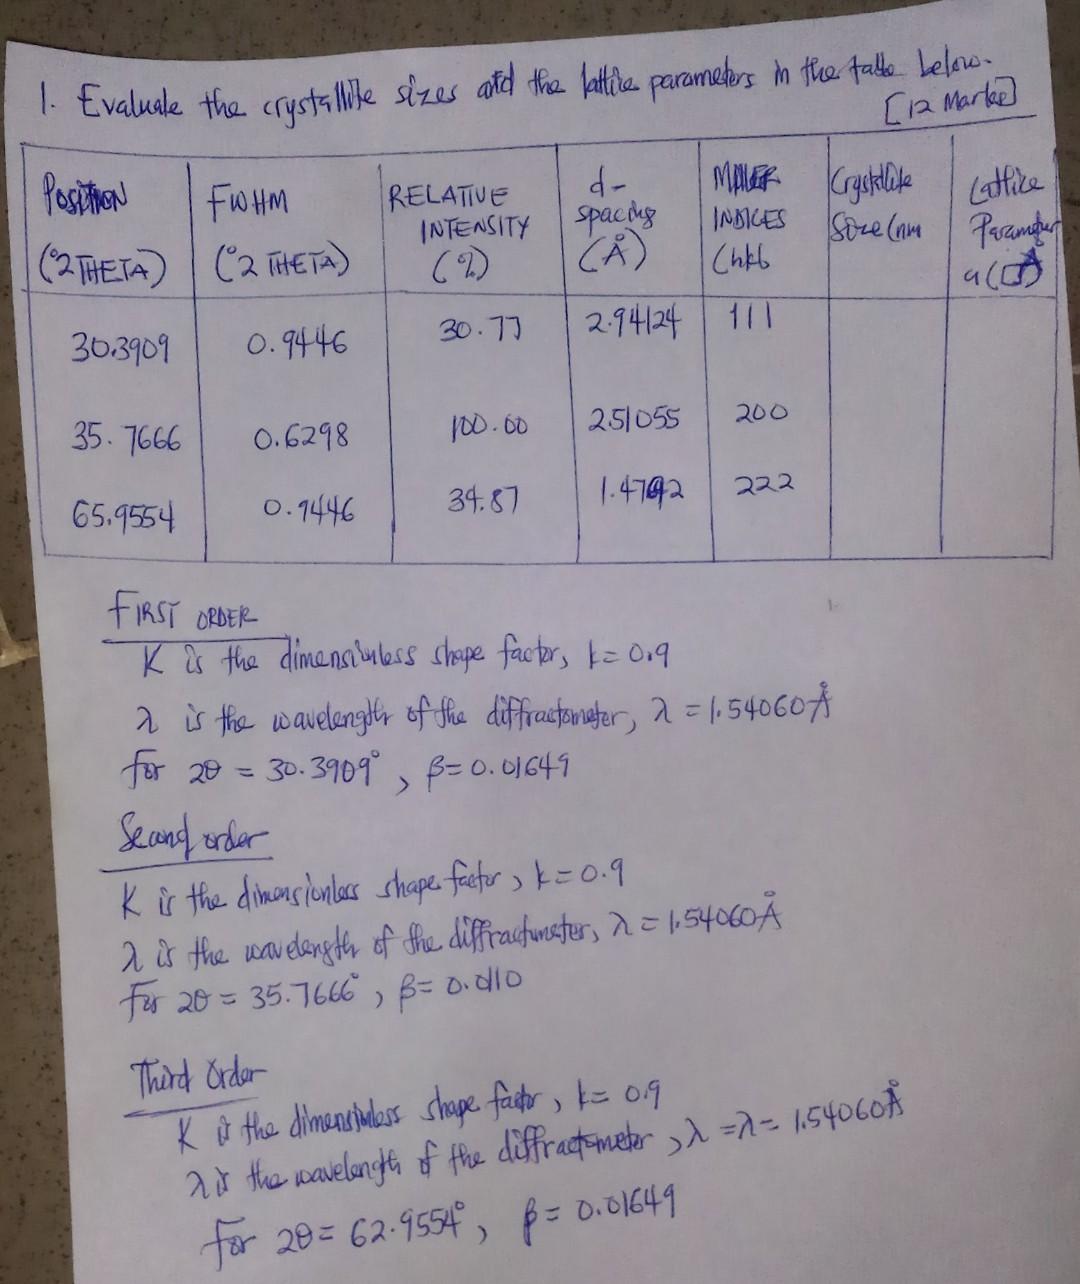 1. Evaluate the crystallite sizes and the lattice parameters in the table below.
[12 Marks]
POSITION (°2 THETA) FWHM (°2 THETA) RELATIVE INTENSITY (%) d-spacing (Å) MILLER INDICES (hkl) Crystallite Size (nm Lattice Parameter a(Å)
30.3909 0.9446 30.77 2.94124 111
35.7666 0.6298 100.00 2.51055 200
65.9554 0.9446 34.87 222
FIRST ORDER
K is the dimensionless shape factor, k = 0.9
λ is the wavelength of the diffractometer, λ = 1.54060Å
for 2θ = 30.3909°, β = 0.01649
Second order
K is the dimensionless shape factor, k = 0.9
λ is the wavelength of the diffractometer, λ = 1.54060Å
For 2θ = 35.7666°, β = 0.0110
Third Order
K is the dimensionless shape factor, k = 0.9
λ is the wavelength of the diffractometer, λ = λ = 1.54060Å
for 2θ = 62.9554°, β = 0.01649